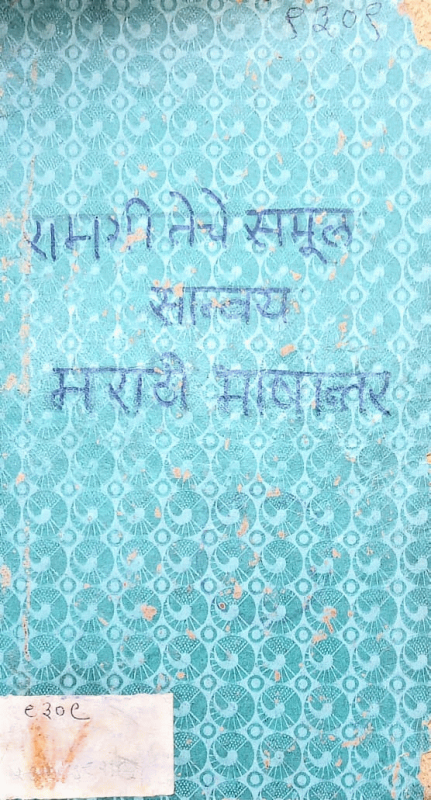 ९३०९
रामगीतेचे समूल
सान्वय
मराठी भाषान्तर
९३०९